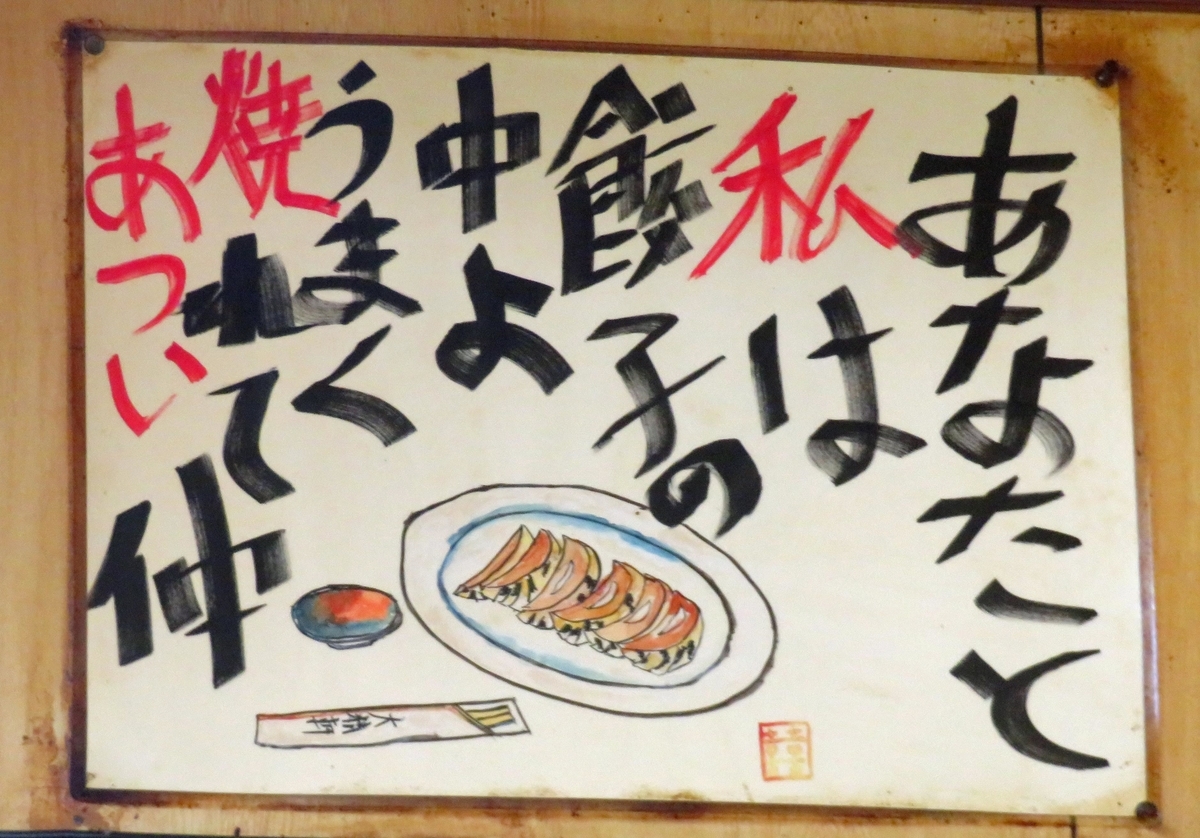 あなたと
私は
餃子の
中よ
うまく
焼れて
あつい仲